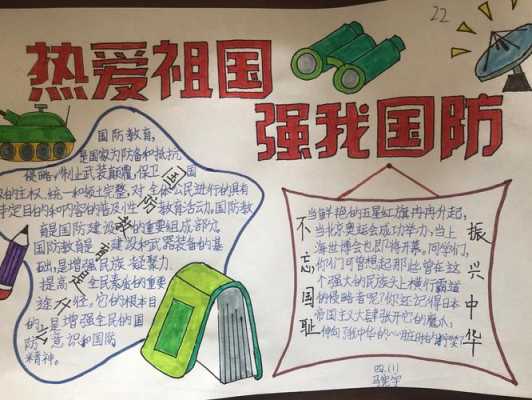 22
热爱祖国
强我国防
国防教育,
是国家为防备和抵抗
侵略,制止武装颠覆,保卫国
的主权、统一和领土完整,对全体公民进行的具有
特定目的和内容的普及性教育活动。国防教
育是国防建设的重要组成部分,
国防教育是建设和武器装备的基
础,是增强民族凝聚力、
提高全民素质的重要
途径。它的根本目
的是增强全民的国
防意识和国防
精神。
不忘国耻
当鲜艳的五星红旗冉冉升起,
当北京奥运会成功举办,当上
海世博会即将开幕,同学们,
你们可曾想起那些曾在这
个强大的民族头上横行霸道
的侵略者呢?你还记得日本
帝国主义大肆张开它的魔爪,
伸向中华的心脏的时候
振兴中华
四.(1)